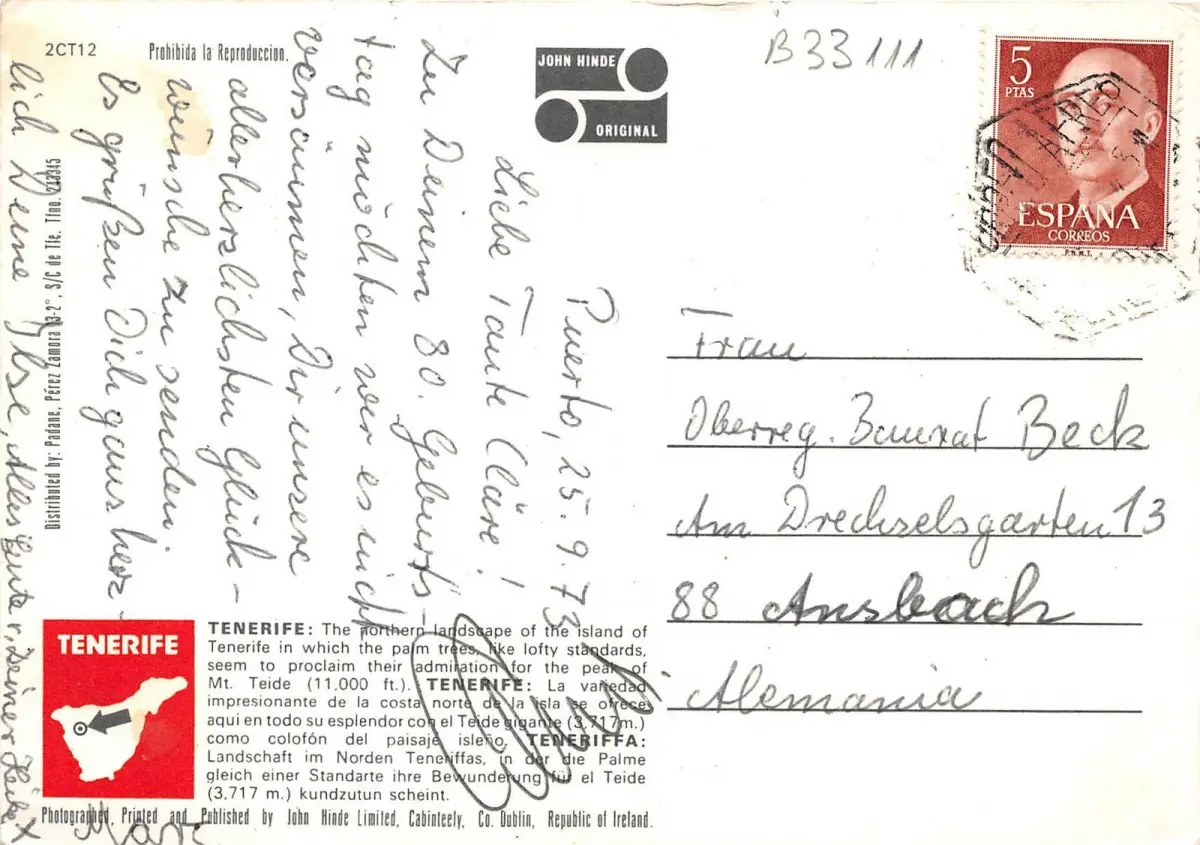 2CT12
Prohibida la Reproduccion.
JOHN HINDE
ORIGINAL
B33111
5
PTAS
ESPAÑA
CORREOS
F.N.M.T.
CORREO AEREO
Puerto, 25.9.73
Liebe Tante Cläre!
Zu Deinem 80. Geburts-
tag möchten wir es nicht
versäumen, Dir unsere
allerherzlichsten Glück-
wünsche zu senden.
Es grüßen Dich ganz herz-
lich Deine Ilse, Alles Gute
Heike
Frau
Oberreg. Baurat Beck
Am Drechselsgarten 13
88 Ansbach
Alemania
Distributed by: Padane, Pérez Zamora 13-2°, S/C de Tfe. Tfno. 243345
TENERIFE
TENERIFE: The northern landscape of the island of
Tenerife in which the palm trees, like lofty standards,
seem to proclaim their admiration for the peak of
Mt. Teide (11,000 ft.). TENERIFE: La variedad
impresionante de la costa norte de la isla se ofrece
aqui en todo su esplendor con el Teide gigante (3,717m.)
como colofón del paisaje isleño. TENERIFFA:
Landschaft im Norden Teneriffas, in der die Palme
gleich einer Standarte ihre Bewunderung für el Teide
(3,717 m.) kundzutun scheint.
Photographed, Printed and Published by John Hinde Limited, Cabinteely, Co. Dublin, Republic of Ireland.